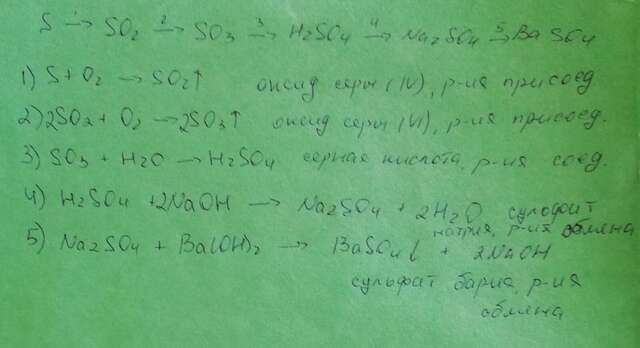 S →¹ SO₂ →² SO₃ →³ H₂SO₄ →⁴ Na₂SO₄ →⁵ BaSO₄
1) S + O₂ → SO₂↑ оксид серы (IV), р-ия присоед
2) 2SO₂ + O₂ → 2SO₃↑ оксид серы (VI), р-ия присоед.
3) SO₃ + H₂O → H₂SO₄ серная кислота, р-ия соед.
4) H₂SO₄ + 2NaOH → Na₂SO₄ + 2H₂O сульфит
натрия, р-ия обмена
5) Na₂SO₄ + Ba(OH)₂ → BaSO₄↓ + 2NaOH
сульфат бария, р-ия
обмена